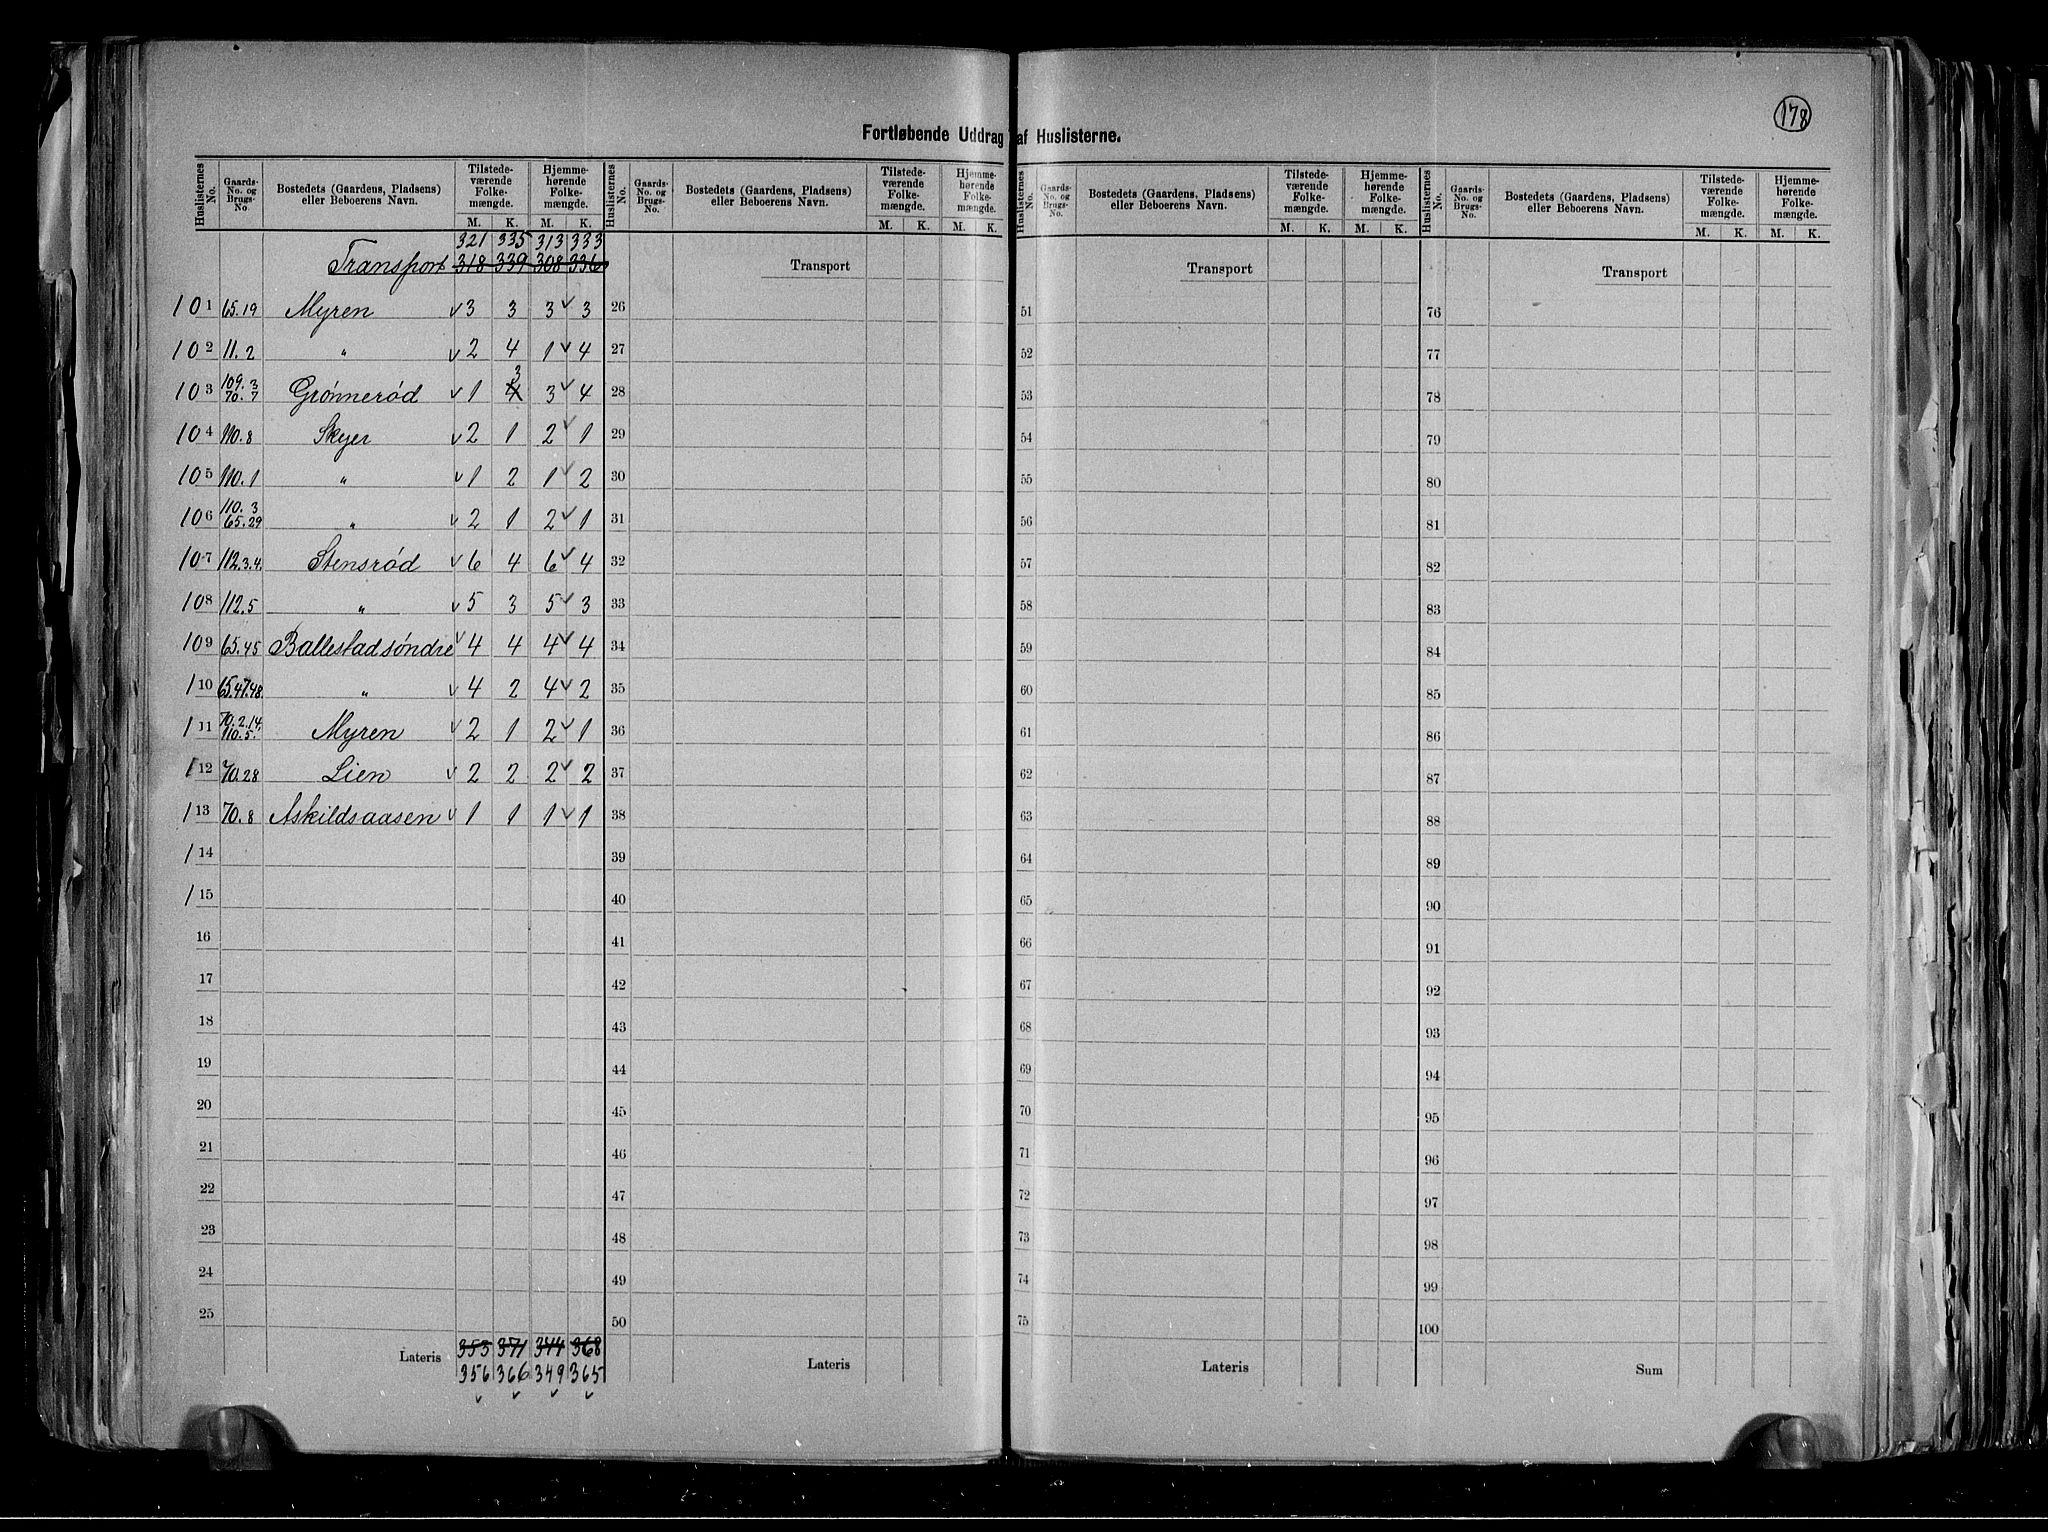 178
Fortløbende Uddrag af Huslisterne.
Huslisternes No. | Gaards-No. og Brugs-No. | Bostedets (Gaardens, Pladsens) eller Beboerens Navn. | Tilstedeværende Folkemængde. M. K. | Hjemmehørende Folkemængde. M. K.
321 335 313 333
Transport 318 339 308 336
101 65.19 Myren 3 3 3 3
102 11.2 " 2 4 1 4
103 109.3 70.7 Grønnerød 1 4 3 3 4
104 110.8 Skyer 2 1 2 1
105 110.1 " 1 2 1 2
106 110.3 65.29 " 2 1 2 1
107 112.3.4. Stensrød 6 4 6 4
108 112.5 " 5 3 5 3
109 65.45 Ballestad søndre 4 4 4 4
110 65.47.48. " 4 2 4 2
111 70.2.14. 110.5. Myren 2 1 2 1
112 70.28 Lien 2 2 2 2
113 70.8 Askildsaasen 1 1 1 1
114
115
16
17
18
19
20
21
22
23
24
25
353 371 344 368
Lateris 356 366 349 365
Huslisternes No. | Gaards-No. og Brugs-No. | Bostedets (Gaardens, Pladsens) eller Beboerens Navn. | Tilstedeværende Folkemængde. M. K. | Hjemmehørende Folkemængde. M. K.
Transport
26
27
28
29
30
31
32
33
34
35
36
37
38
39
40
41
42
43
44
45
46
47
48
49
50
Lateris
Huslisternes No. | Gaards-No. og Brugs-No. | Bostedets (Gaardens, Pladsens) eller Beboerens Navn. | Tilstedeværende Folkemængde. M. K. | Hjemmehørende Folkemængde. M. K.
Transport
51
52
53
54
55
56
57
58
59
60
61
62
63
64
65
66
67
68
69
70
71
72
73
74
75
Lateris
Huslisternes No. | Gaards-No. og Brugs-No. | Bostedets (Gaardens, Pladsens) eller Beboerens Navn. | Tilstedeværende Folkemængde. M. K. | Hjemmehørende Folkemængde. M. K.
Transport
76
77
78
79
80
81
82
83
84
85
86
87
88
89
90
91
92
93
94
95
96
97
98
99
100
Sum